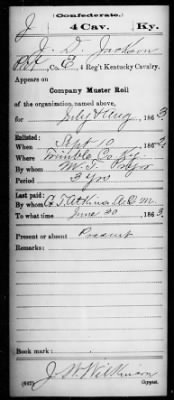 J
(Confederate.)
4 Cav. Ky.
J. D. Jackson
Pvt, Co. E, 4 Reg't Kentucky Cavalry.
Appears on
Company Muster Roll
of the organization named above,
for July & Aug, 1863.
Enlisted:
When Sept 10, 1862.
Where Trimble Co Ky.
By whom W. T. Pryor
Period 3 yrs
Last paid:
By whom G. T. Atkins A. Q. M.
To what time June 30, 1863.
Present or absent Present
Remarks:
Book mark:
J. W. Wilkinson
(642) Copyist.